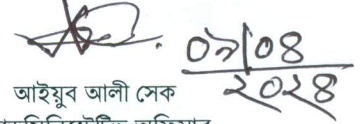 ০৯/০৪
২০২৪
আইয়ুব আলী সেক